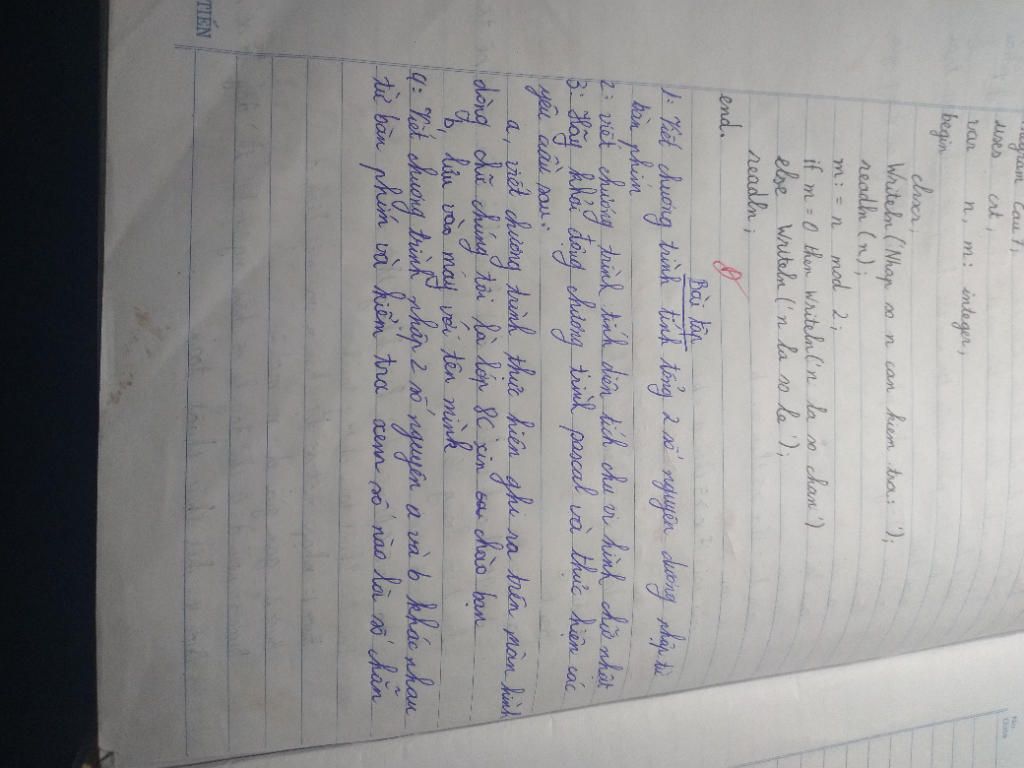 uses crt;
var n, m: integer;
begin
clrscr;
Writeln('Nhap so n can kiem tra: ');
readln(n);
m:= n mod 2;
if m = 0 then writeln('n la so chan')
else writeln('n la so le');
readln;
end.
Bài tập
1: Viết chương trình tính tổng 2 số nguyên dương nhập từ
bàn phím
2: viết chương trình tính diện tích chu vi hình chữ nhật
3: Hãy khởi động chương trình pascal và thực hiện các
yêu cầu sau:
a, viết chương trình thực hiện ghi ra trên màn hình
dòng chữ chúng tôi là lớp 8C xin sa chào bạn
b, lưu vào máy với tên mình
4: Viết chương trình nhập 2 số nguyên a và b khác nhau
từ bàn phím và kiểm tra xem số nào là số chẵn
TIẾN